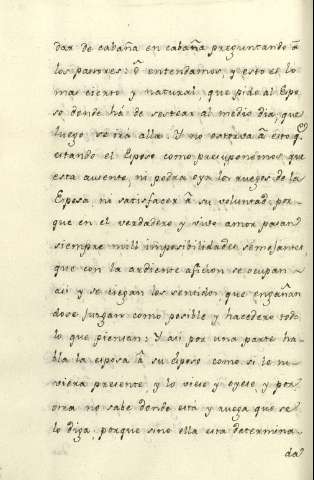 dar de cabaña en cabaña preguntando â
los pastores: ô entendamos, y esto es lo
mas cierto y natural, que pide al Espo
so donde há de sestear al medio dia, que
luego se irá alla. Y no estorva â esto q.e
estando el Esposo como presuponemos, que
esta ausente, ni podra oyr los ruegos de la
Esposa, ni satisfacer â su voluntad, por-
que en el verdadero y vivo amor pasan
siempre mill imposibilidades semejantes,
que con la ardiente aficion se ocupan
asi y se ciegan los sentidos, que engañan
dose, juzgan como posible y hacedero todo
lo que piensan: Y asi por una parte ha
bla la esposa â su Esposo como si le tu-
viera presente, y lo viese y oyese, y por
otra no sabe donde esta y ruega que se
lo diga, porque sino ella esta determina-
da